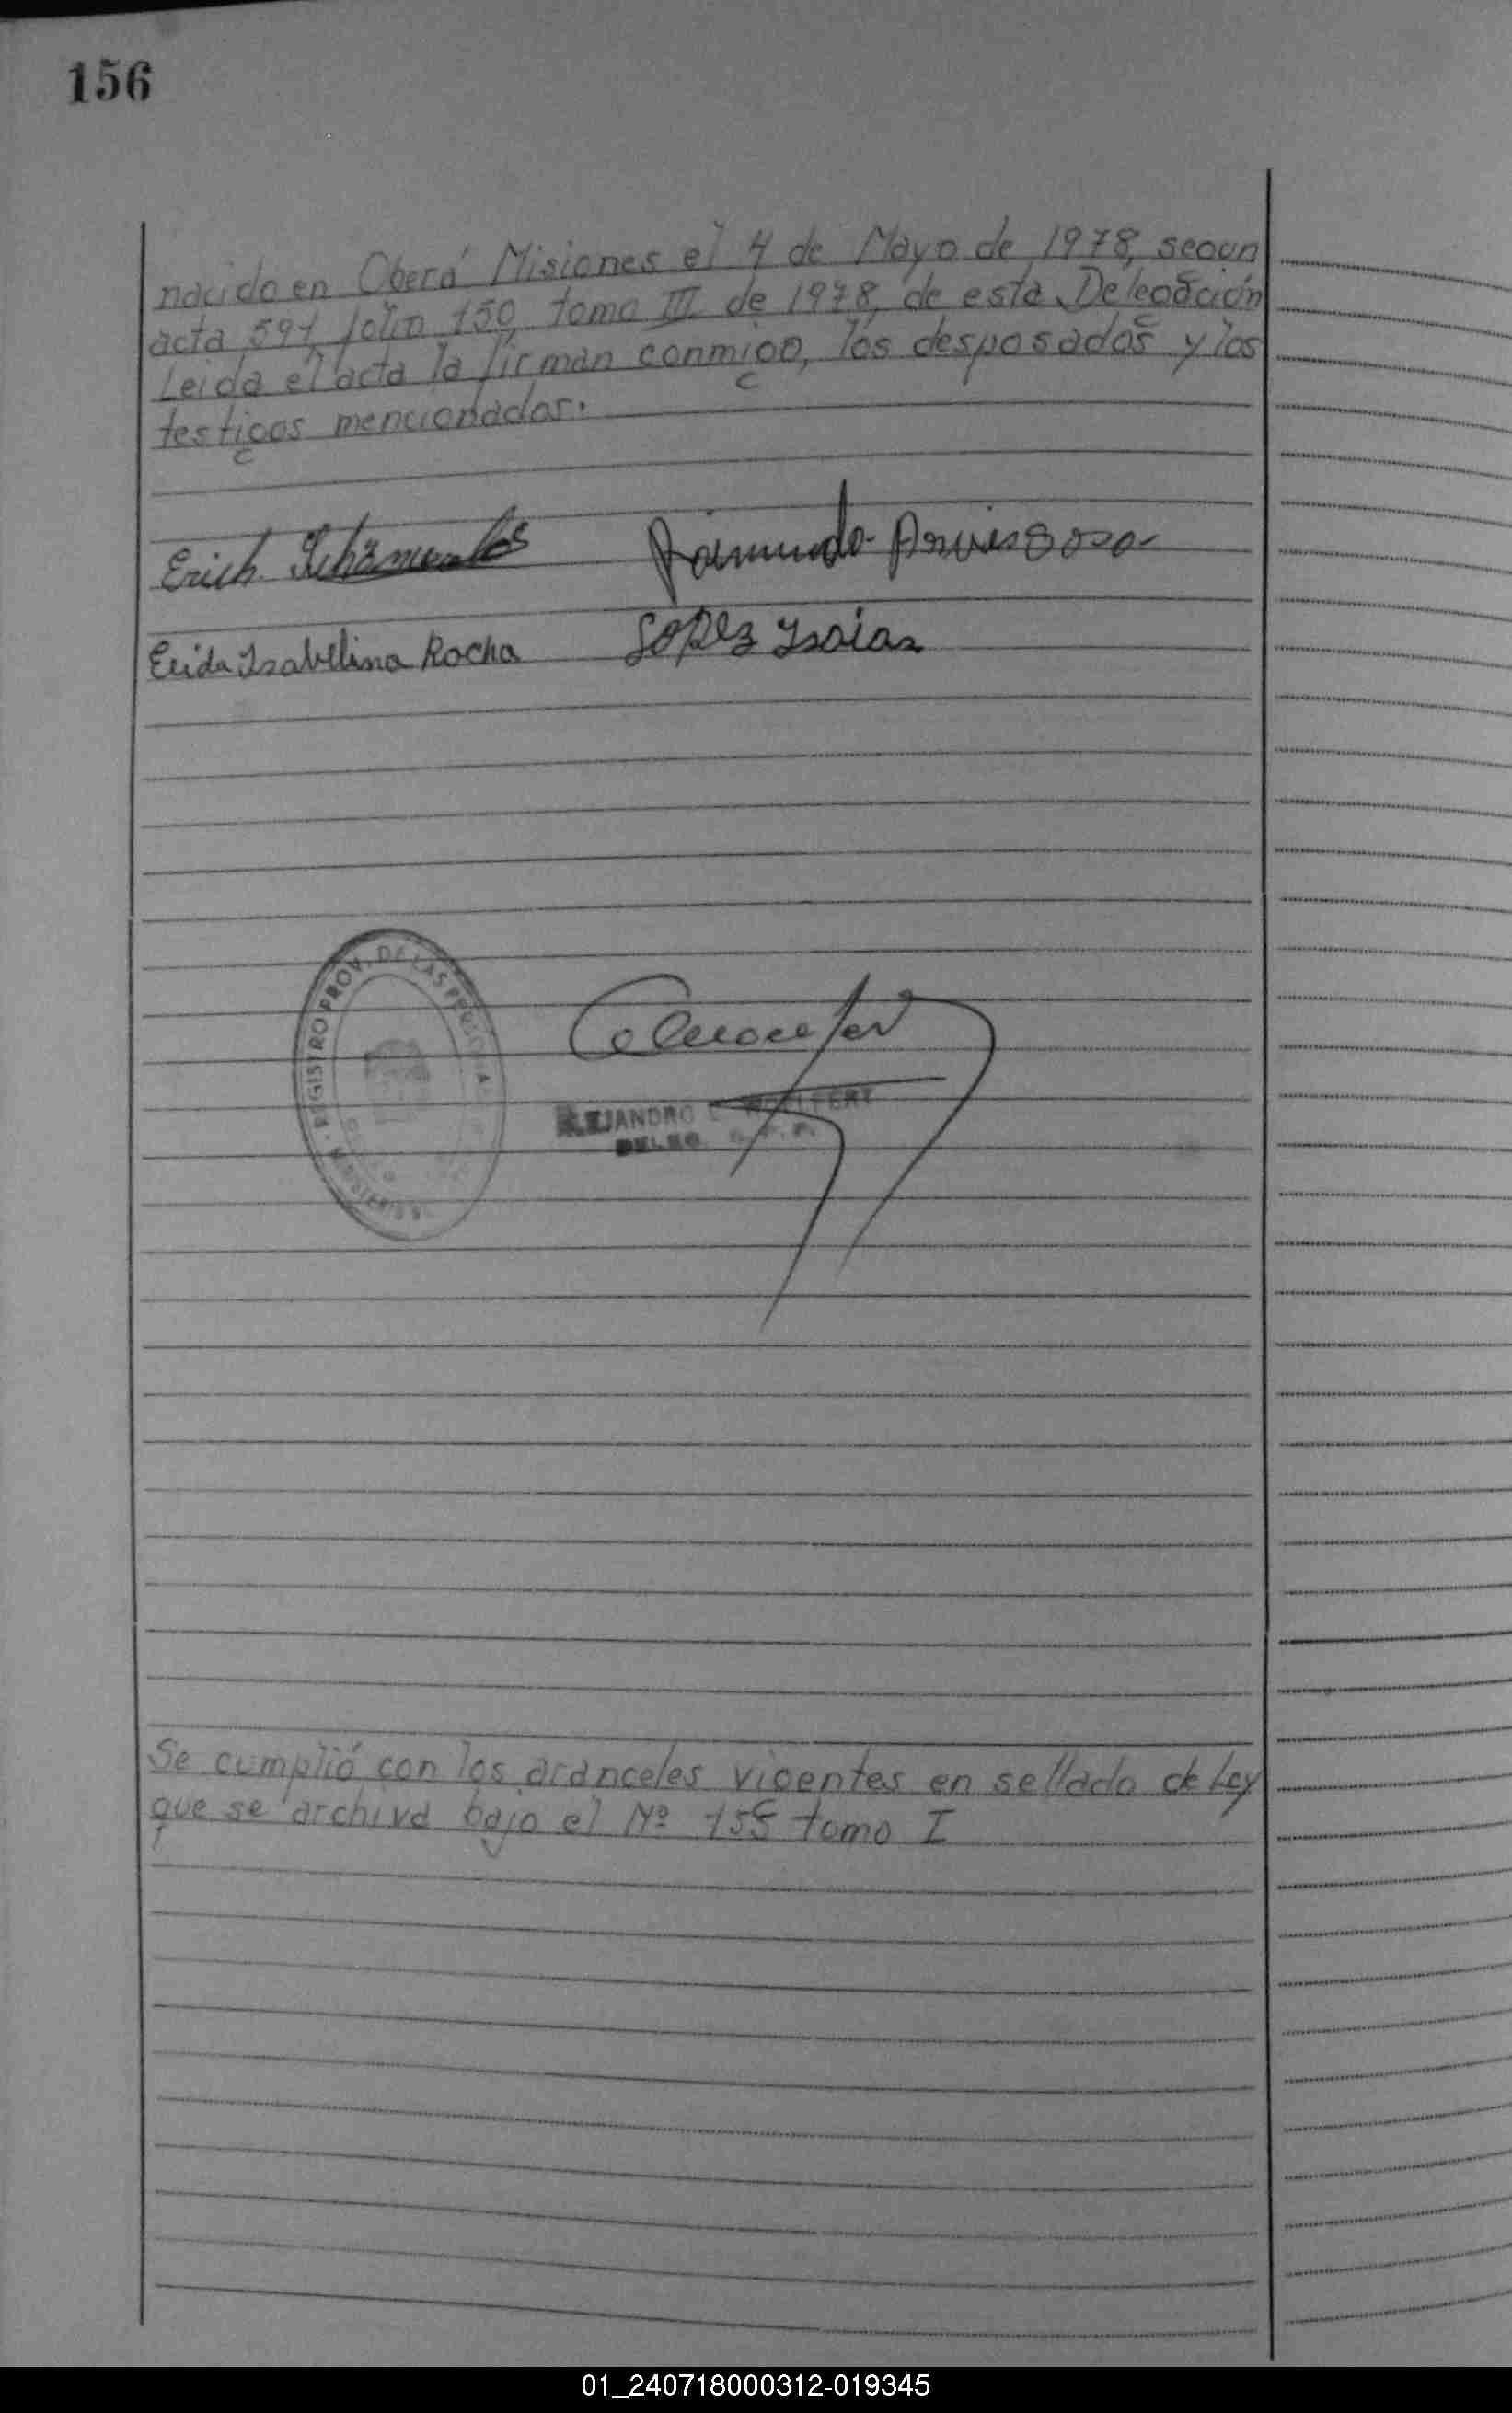 156
nacido en Oberá Misiones el 4 de Mayo de 1978, según
acta 591 folio 150, tomo III de 1978, de esta Delegación
Leida el acta la firman conmigo, los desposados y los
testigos mencionados.
Erich
Raimundo
Erida Isabelina Rocha
Lopez Isaias
REGISTRO PROV. DE LAS PERSONAS
MINISTERIO
ALEJANDRO E. WOLFERT
DELEG. R. P. P.
Se cumplió con los aranceles vigentes en sellado de Ley
que se archiva bajo el Nº 155 tomo I
01_240718000312-019345